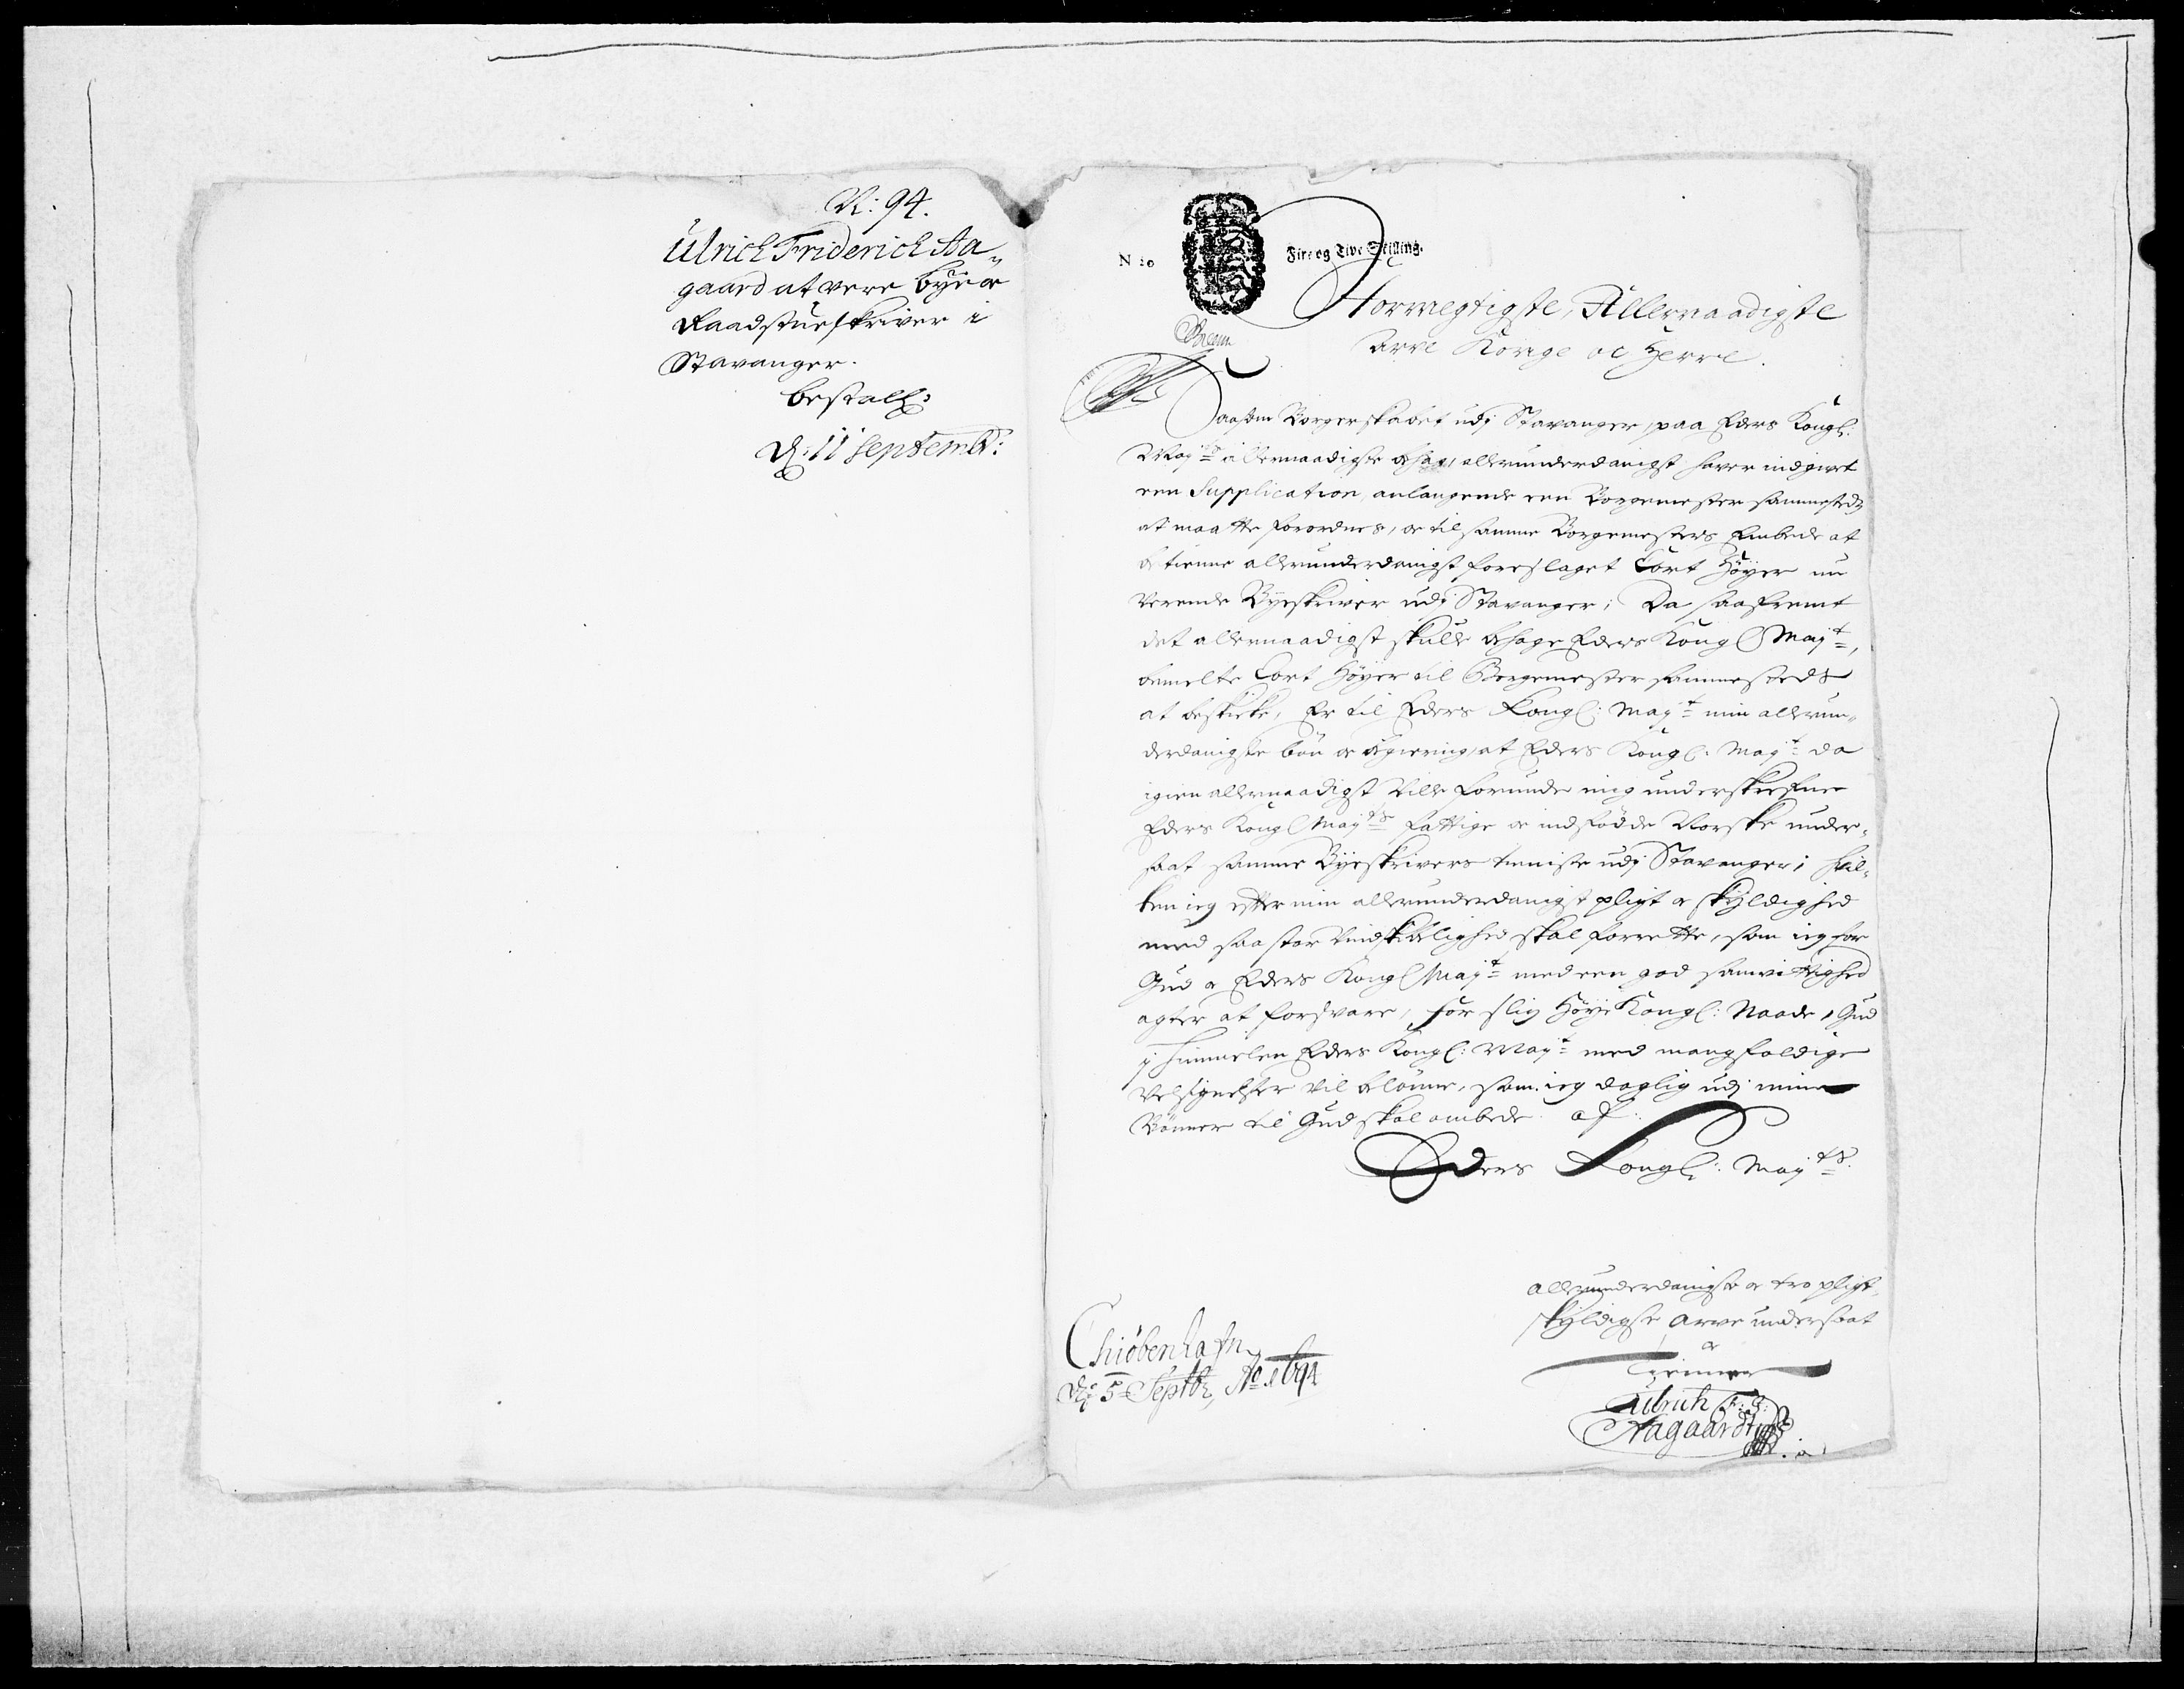 N: 94.
Ulrich Friderich Aa-
gaard at være bye oc
Raadstueskriver i
Stavanger.
bestall:
d: 11 Septembr:
N 20
Fire og Tive Skilling.
Stormegtigste, Allernaadigste
Arve Konge oc Herre.
Saasom Borgerskabet udj Stavanger, paa Eders Kongl:
Mayts allernaadigste behag, allerunderdanigst haver indgivet
een Supplication, anlangende een Borgemester sammesteds
at maatte forordnes, oc til samme Borgemesters Embede at
betienne allerunderdanigst foreslaget Cort Høyer nu
verende Byeskriver udj Stavanger; Da saafremt
det allernaadigst skulle behage Eders Kongl Mayt,
bemelte Cort Høyer til Borgemester sammesteds
at beskicke, Er til Eders Kongl: Mayt min allerun-
derdanigste bøn oc begiering, at Eders Kongl: Mayt da
igien allernaadigst ville forunde mig underskrefne
Eders Kongl Mayts fattige oc indfødde Norske under-
saat samme Byeskrivers tieniste udj Stavanger; hvil-
ken ieg efter min allerunderdanigst pligt oc skyldighed
med saa stor vindskibelighed skal forrette, som ieg for
Gud oc Eders Kongl Mayt med een god samvittighed
agter at forsvare, for slig Høye Kongl: Naade, Gud
j himmelen Eders Kongl: Mayt med mangfoldige
velsignelser vil belønne, som ieg daglig udj mine
Bønner til Gud skal ombede af
Eders Kongl: Mayts.
allerunderdanigste oc tro pligt
skyldigste arve undersaat
oc
Tienner
Ulrich F:
Aagaardt
Chiöbenhafn
d: 5 Septbr, Ao 1694